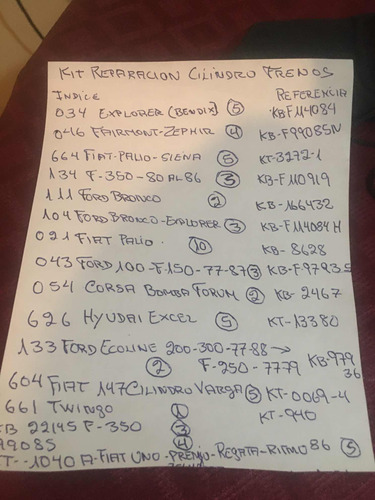 KIT REPARACION CILINDRO FRENOS
INDICE REFERENCIA
034 EXPLORER (BENDIX) 5 KBF114084
046 FAIRMONT-ZEPHIR 4 KB-F99085N
664 FIAT-PALIO-SIENA 5 KT-3272-1
134 F-350-80 AL 86 3 KB-F110919
111 FORD BRONCO 2 KB-166432
104 FORD BRONCO-EXPLORER 3 KB-F114084H
021 FIAT PALIO. 10 KB-8628
043 FORD 100-F-150-77-87 3 KB-F9793S
054 CORSA BOMBA FORUM 2 KB-2467
626 HYUDAI EXCEL 5 KT-13380
133 FORD ECOLINE 200-300-77-88 → KB-979
2 F-250-7779 36
604 FIAT 147 CILINDRO VARGA 5 KT-0069-4
661 TWINGO 1 KT-940
KB 22145 F-350 3
99085 4
KT--1040 A-FIAT UNO-PREMIO-REGATA-RITMO 86 5